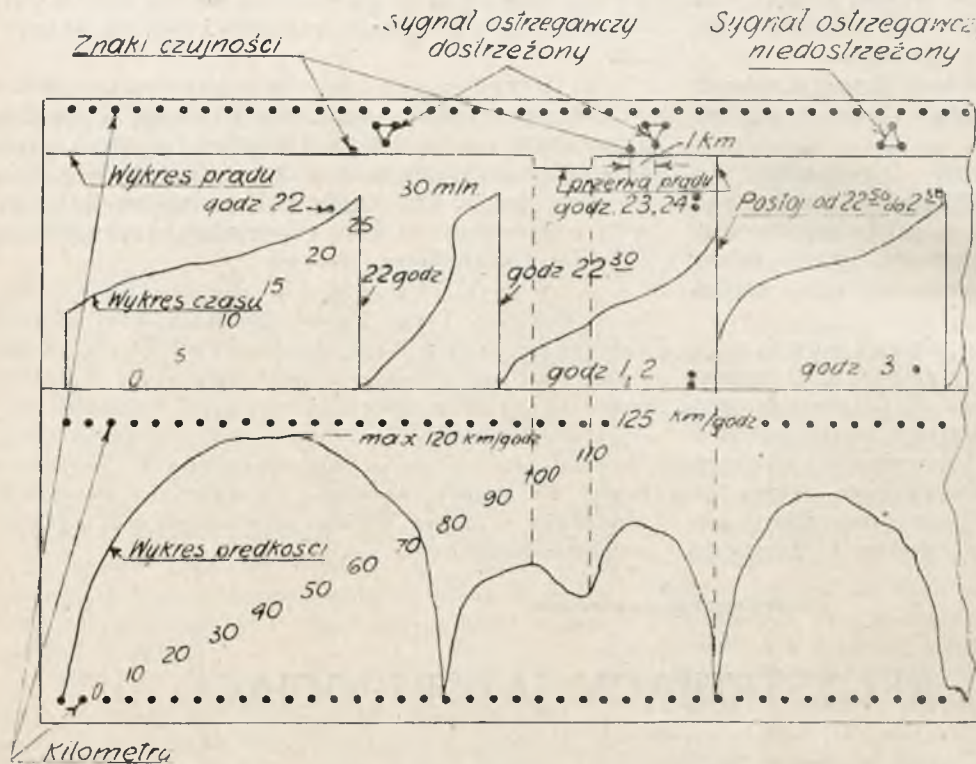 Znaki czujności
Sygnał ostrzegawczy
dostrzeżony
Sygnał ostrzegawcz
niedostrzeżony
1 km
Wykres prądu
godz 22
30 min
przerwa prądu
godz. 23, 24
Postój od 22 50 do 2
25
20
22 godz
godz 22 30
Wykres czasu
15
10
5
0
godz 1, 2
godz. 3
125 km/godz
max 120 km/godz
110
100
90
80
70
60
50
40
30
20
10
0
Wykres prędkości
Kilometry